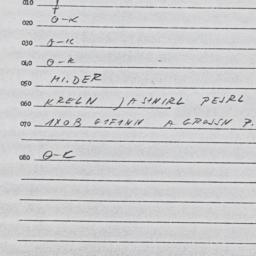 010
020 O-K
030 O-K
040 O-K
050 HI.DER
060 KRELN JASINIRL PESRL
070 A GROSSN P.
080 O-K